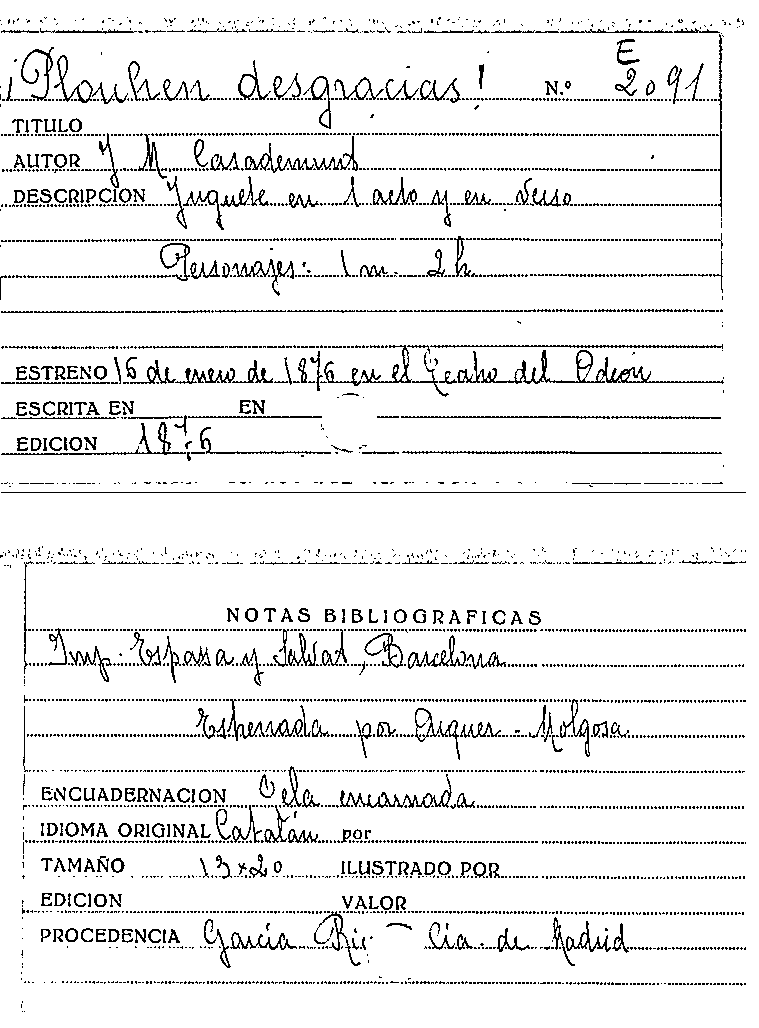 ¡Plouhen desgracias! N.º E 2091
TITULO
AUTOR J M. Casademunt
DESCRIPCION Juguete en 1 acto y en verso
Personajes: 1 m. 2 h
ESTRENO 16 de enero de 1876 en el Teatro del Odeón
ESCRITA EN EN
EDICION 1876
NOTAS BIBLIOGRAFICAS
Imp. Espasa y Salvat, Barcelona
Estrenada por Arquer - Molgosa
ENCUADERNACION Tela encarnada
IDIOMA ORIGINAL Catalán por
TAMAÑO 13 x 20 ILUSTRADO POR
EDICION VALOR
PROCEDENCIA García Rig - Cia. de Madrid